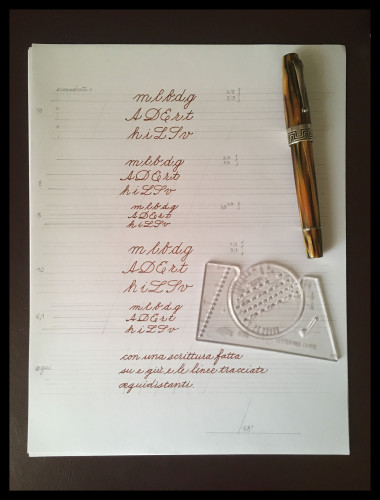 m l b d g
A D E r t
h i L S v
m l b d g
A D E r t
h i L S v
m l b d g
A D E r t
h i L S v
m l b d g
A D E r t
h i L S v
m l b d g
A D E r t
h i L S v
con una scrittura fatta
su e giù e le linee tracciate
equidistanti.